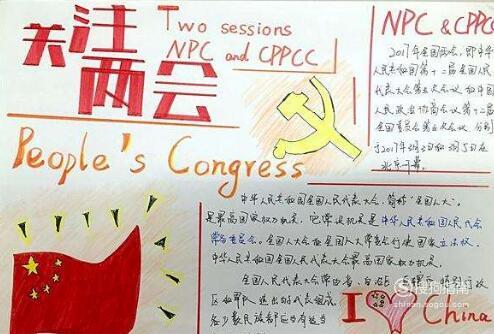 关注
两会
Two sessions
NPC and CPPCC
NPC & CPPCC
2017年全国两会，即中华
人民共和国第十二届全国人民
代表大会第五次会议和中国
人民政治协商会议第十二届
全国委员会第五次会议，分别
于2017年3月5日和3月3日在
北京开幕。
People's Congress
中华人民共和国全国人民代表大会，简称"全国人大"。
是最高国家权力机关，它常设机关是中华人民共和国人民代会
常务委员会。全国人大会和全国人大常委会行使国家立法权。
中华人民共和国全国人民代表大会是最高国家权力机关。
全国人民代表大会常由省、自治区、直辖市特别行政
区和军队选出的代表组成
各少数民族都应当有适当
I
China
搜狗指南
shinan.sogou.com